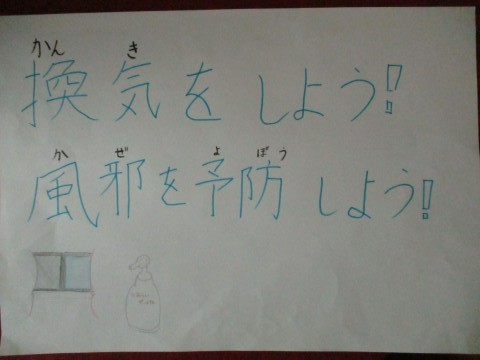 かんき
換気をしよう!
かぜ よぼう
風邪を予防しよう!